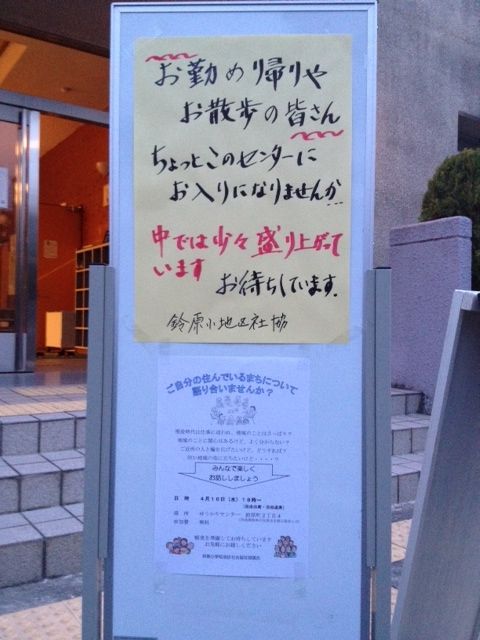 お勤め帰りや
お散歩の皆さん
ちょっとこのセンターに
お入りになりませんか
中では少々盛り上がって
います
お待ちしています。
鈴原小地区社協
ご自分の住んでいるまちについて
語り合いませんか?
みんなで楽しく
お話ししましょう
日 時 4月16日(水)18時~
場 所 ゆうかりセンター
参加費 無料
お気軽にお越しください